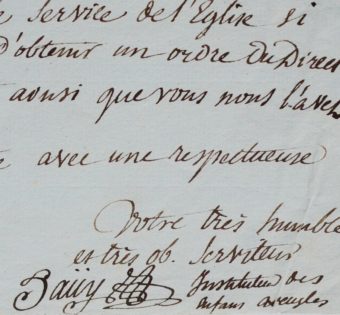 Service de l'Eglise si
d'obtenir un ordre du Direc
ainsi que vous nous l'avez
avec une respectueuse
Votre très humble
et très ob. Serviteur
Haüy Instituteur des
enfans aveugles